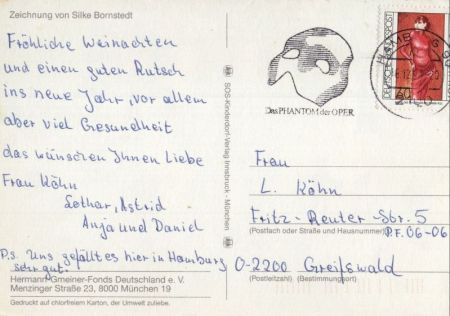 Zeichnung von Silke Bornstedt
Fröhliche Weinachten
und einen guten Rutsch
ins neue Jahr, vor allem
aber viel Gesundheit
das wünschen Ihnen Liebe
Frau Köhn
Lothar, Astrid
Anja und Daniel
P.S. Uns gefällt es hier in Hamburg
sehr gut.
Hermann-Gmeiner-Fonds Deutschland e. V.
Menzinger Straße 23, 8000 München 19
Gedruckt auf chlorfreiem Karton, der Umwelt zuliebe.
SOS-Kinderdorf-Verlag Innsbruck - München
Das PHANTOM der OPER
HAMBURG
DEUTSCHE BUNDESPOST
60
Frau
L. Köhn
Fritz-Reuter-Str. 5
(Postfach oder Straße und Hausnummer) P.F. 06-06
O-2200 Greifswald
(Postleitzahl) (Bestimmungsort)